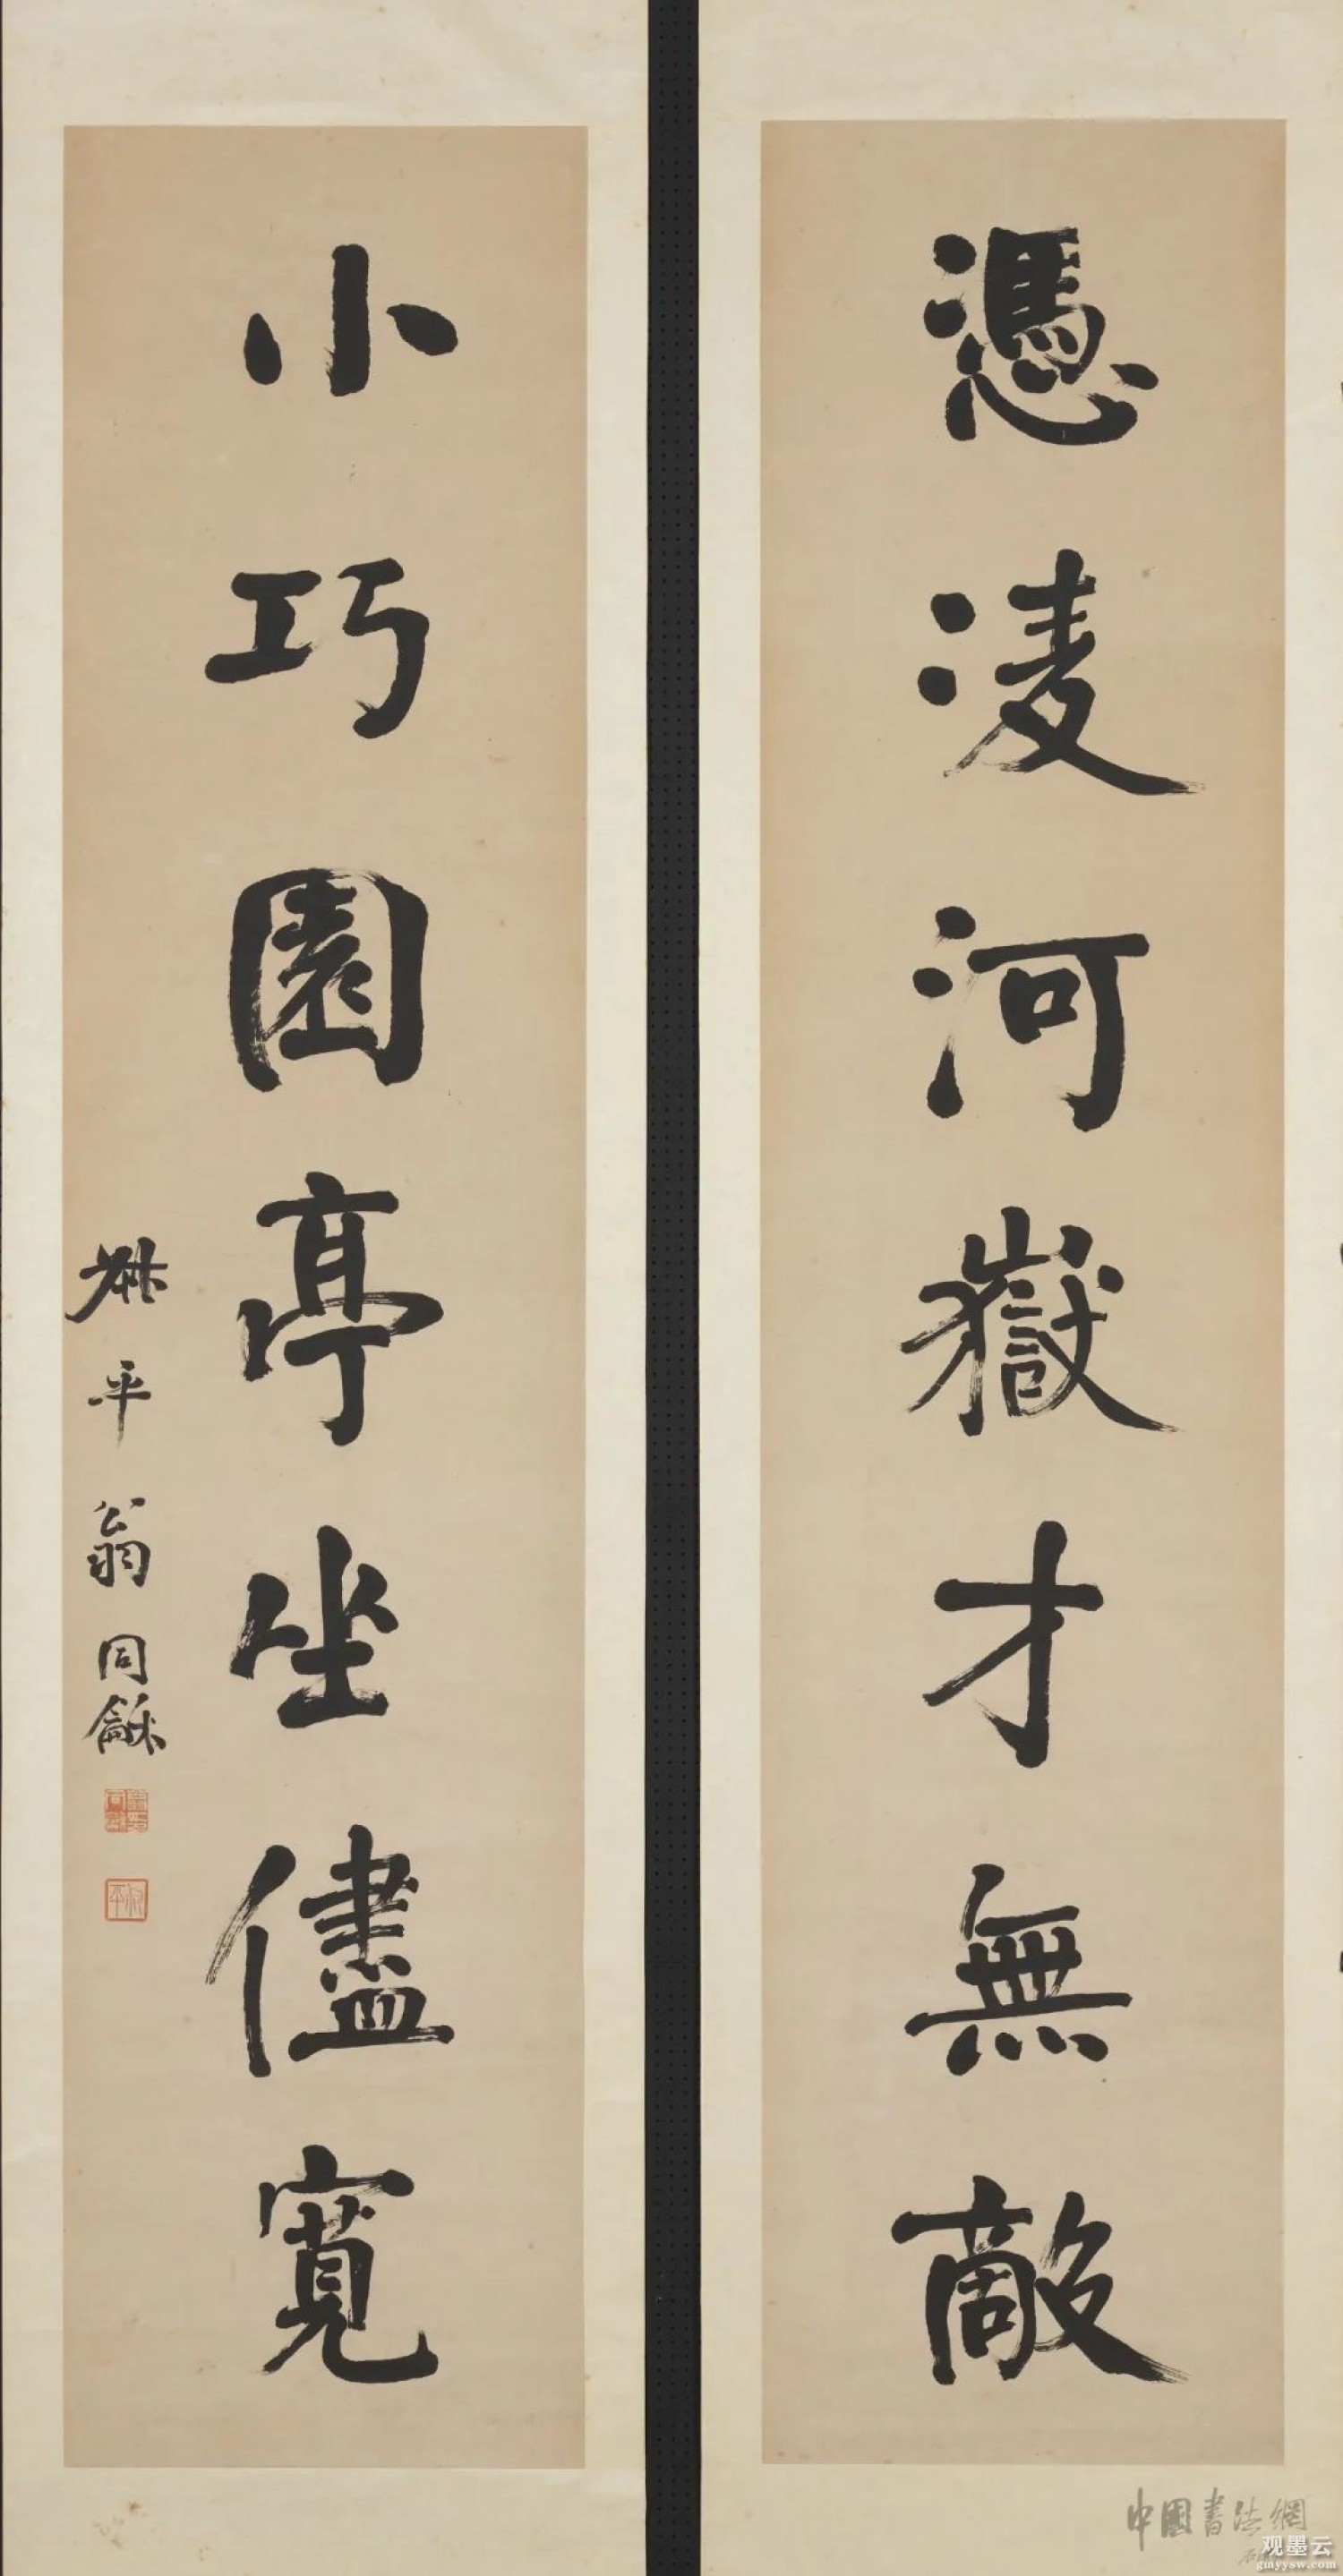 憑淩河嶽才無敵
小巧園亭坐儘寬
叔平翁同龢
翁同龢印
叔平
中國書法網
观墨云
gmyysw.com